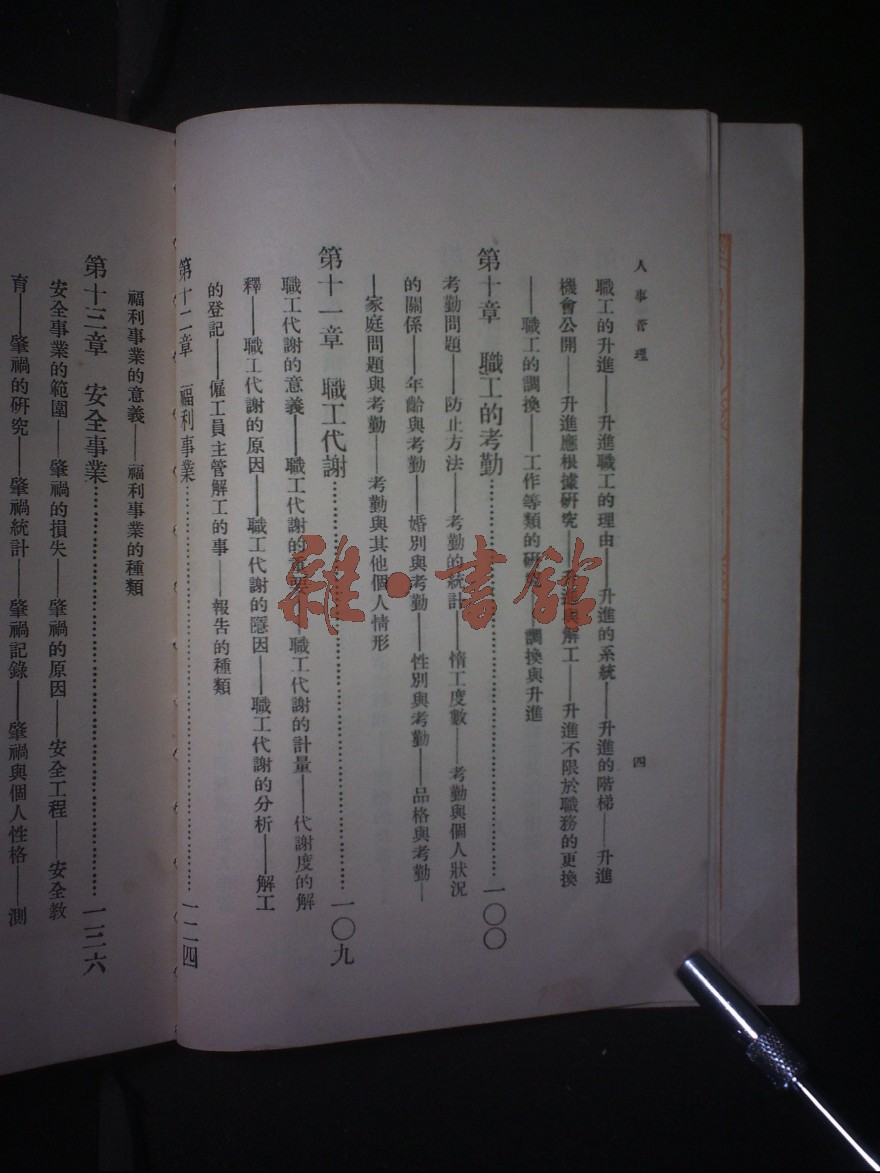 人事管理
四
職工的升進——升進職工的理由——升進的系統——升進的階梯——升進
機會公開——升進應根據研究——升進與解工——升進不限於職務的更換
——職工的調換——工作等類的研究——調換與升進
第十章 職工的考勤…………一〇〇
考勤問題——防止方法——考勤的統計——惰工度數——考勤與個人狀況
的關係——年齡與考勤——婚別與考勤——性別與考勤——品格與考勤—
—家庭問題與考勤——考勤與其他個人情形
第十一章 職工代謝…………一〇九
職工代謝的意義——職工代謝的重要——職工代謝的計量——代謝度的解
釋——職工代謝的原因——職工代謝的隱因——職工代謝的分析——解工
的登記——僱工員主管解工的事——報告的種類
第十二章 福利事業…………一二四
福利事業的意義——福利事業的種類
第十三章 安全事業…………一三六
安全事業的範圍——肇禍的損失——肇禍的原因——安全工程——安全教
育——肇禍的研究——肇禍統計——肇禍記錄——肇禍與個人性格——測
雜·書館